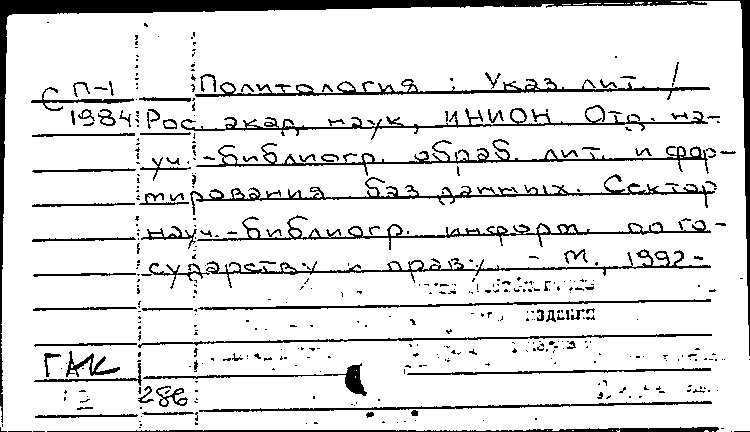 С П-1 Политология : Указ. лит. /
1984 Рос. акад. наук, ИНИОН. Отд. на-
уч.-библиогр. обраб. лит. и фор-
мирования баз данных. Сектор
науч.-библиогр. информ. по го-
сударству и праву. - М., 1992-
издания
ГАК
286